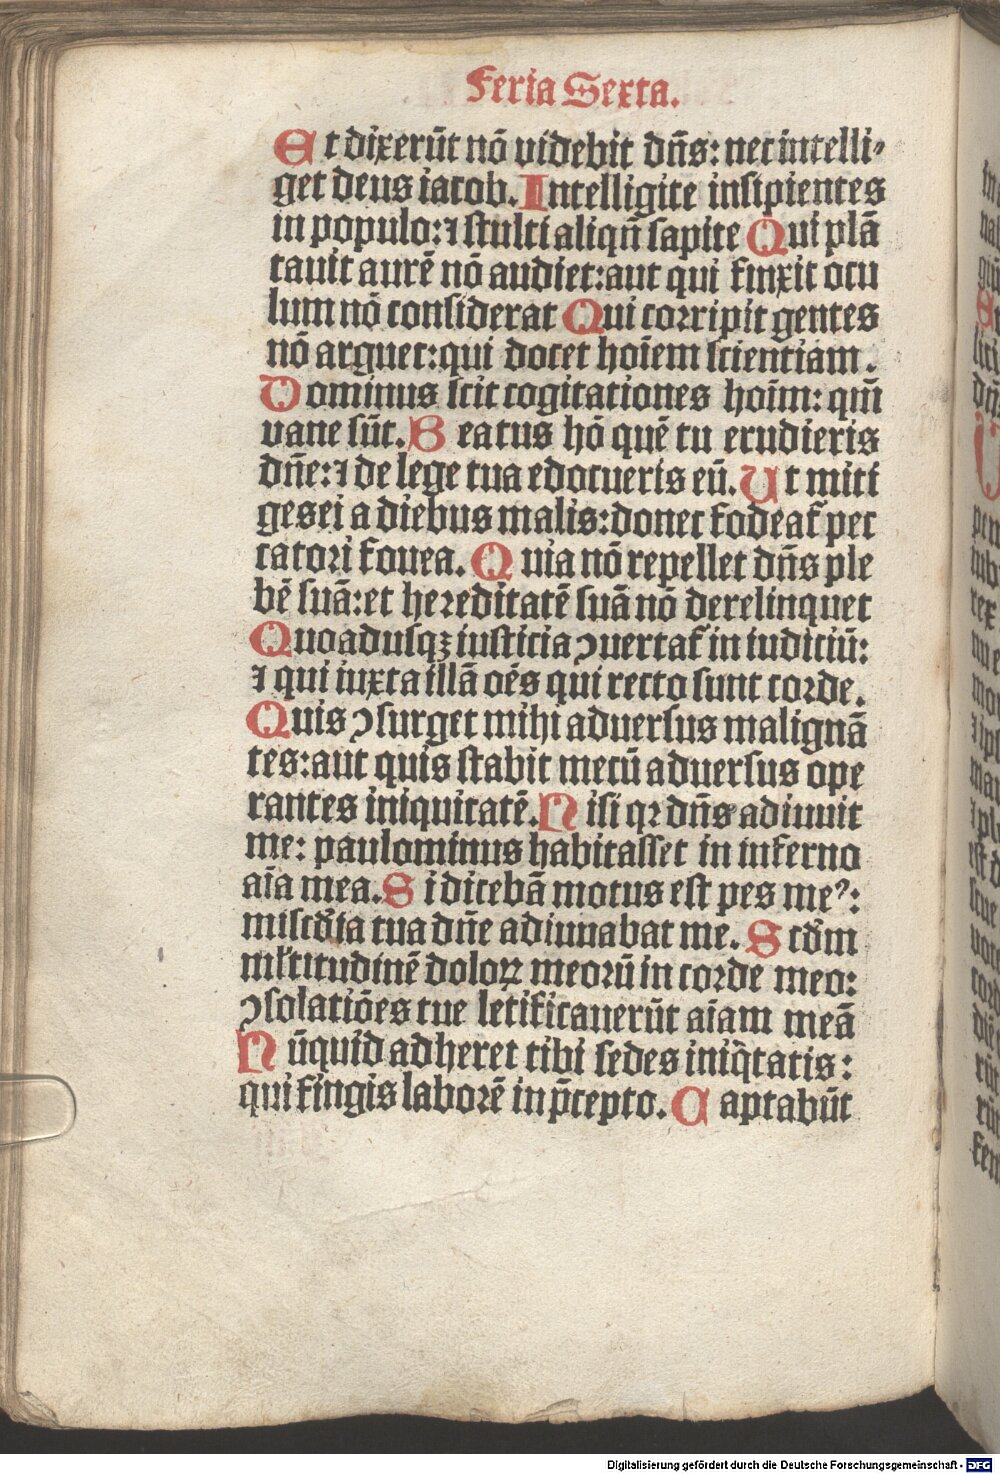 Feria Sexta.
Et dixerūt nō videbit dn̄s: nec intelli⸗
get deus iacob. Intelligite insipientes
in populo: ⁊ stulti aliqn̄ sapite Qui plā
tauit aurē nō audiet: aut qui finxit ocu
lum nō considerat Qui corripit gentes
nō arguet: qui docet hoīem scientiam.
Dominus scit cogitationes hoīm: qm̄
vane sūt. Beatus hō quē tu erudieris
dn̄e: ⁊ de lege tua edocueris eū. Ut miti
gesei a diebus malis: donec fodeat᷑ pec
catori fouea. Quia nō repellet dn̄s ple
bē suā: et hereditatē suā nō derelinquet
Quoadusqꝫ iusticia ꝯuertat᷑ in iudiciū:
⁊ qui iuxta illā oēs qui recto sunt corde.
Quis ꝯsurget mihi aduersus malignā
tes: aut quis stabit mecū aduersus ope
rantes iniquitatē. Nisi qꝛ dn̄s adiuuit
me: paulominus habitasset in inferno
aīa mea. Si dicebā motus est pes meꝰ:
miscd̄ia tua dn̄e adiuuabat me. Scd̄m
ml̓titudinē dolorꝝ meorū in corde meo:
ꝯsolatiōes tue letificauerūt aīam meā
Nūquid adheret tibi sedes iniq̄tatis:
qui fingis laborē in p̄cepto. Captabūt
Digitalisierung gefördert durch die Deutsche Forschungsgemeinschaft - DFG